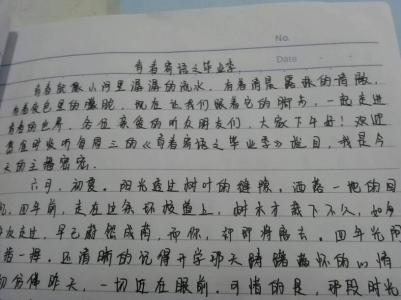 No.
Date
青春寄语之毕业季
青春就像小河里潺潺的流水，青春清晨
青春夜色里的朦胧，现在让我们跟着它的脚步，一起走进
青春的世界，各位亲爱的听众朋友们，大家下午好！欢迎
您准时收听每周三的《青春寄语之毕业季》栏目，我是今
天的主播密密。
六月，初夏。阳光透过树叶的缝隙，洒落一地的
四年前，走在这条环校道上，树木才栽下不久，如今
再次走过，早已蔚然成荫，而你，却即将离去。四年光阴
一挥，还清晰的记得开学那天
仿佛昨天，一切近在眼前，可惜的是，那段时光